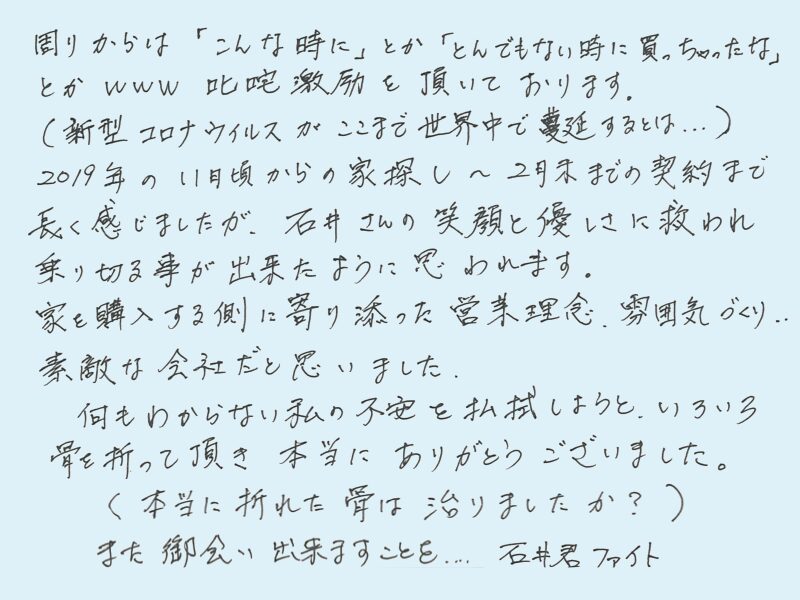 周りからは「こんな時に」とか「とんでもない時に買っちゃったな」
とかwww 叱咤激励を頂いております.
(新型コロナウイルスがここまで世界中で蔓延するとは...)
2019年の11月頃からの家探し〜2月末までの契約まで
長く感じましたが、石井さんの笑顔と優しさに救われ
乗り切る事が出来たように思われます。
家を購入する側に寄り添った営業理念、雰囲気づくり..
素敵な会社だと思いました.
何もわからない私の不安を払拭しようと、いろいろ
骨を折って頂き 本当にありがとうございました。
(本当に折れた骨は治りましたか?)
また御会い出来ますことを.... 石井君ファイト